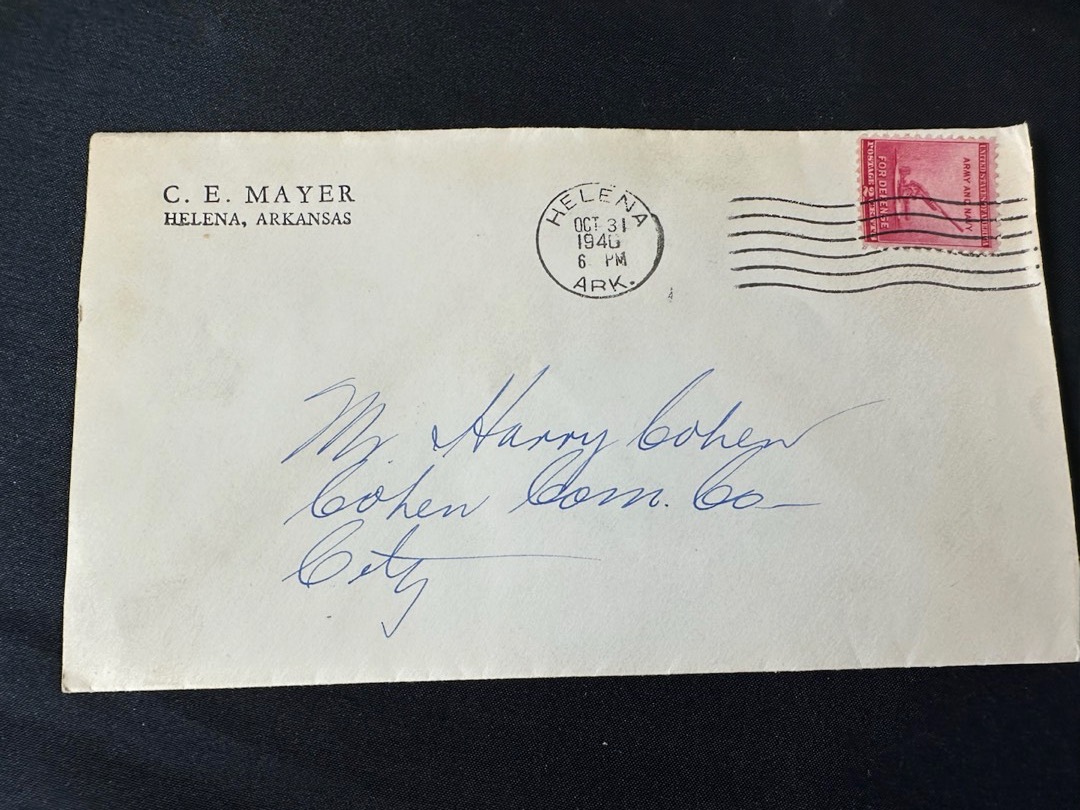 C. E. MAYER
HELENA, ARKANSAS
HELENA
OCT 31
1940
6 PM
ARK.
UNITED STATES OF AMERICA
ARMY AND NAVY
FOR DEFENSE
POSTAGE 2 CENTS
Mr. Harry Cohen
Cohen Com. Co
City